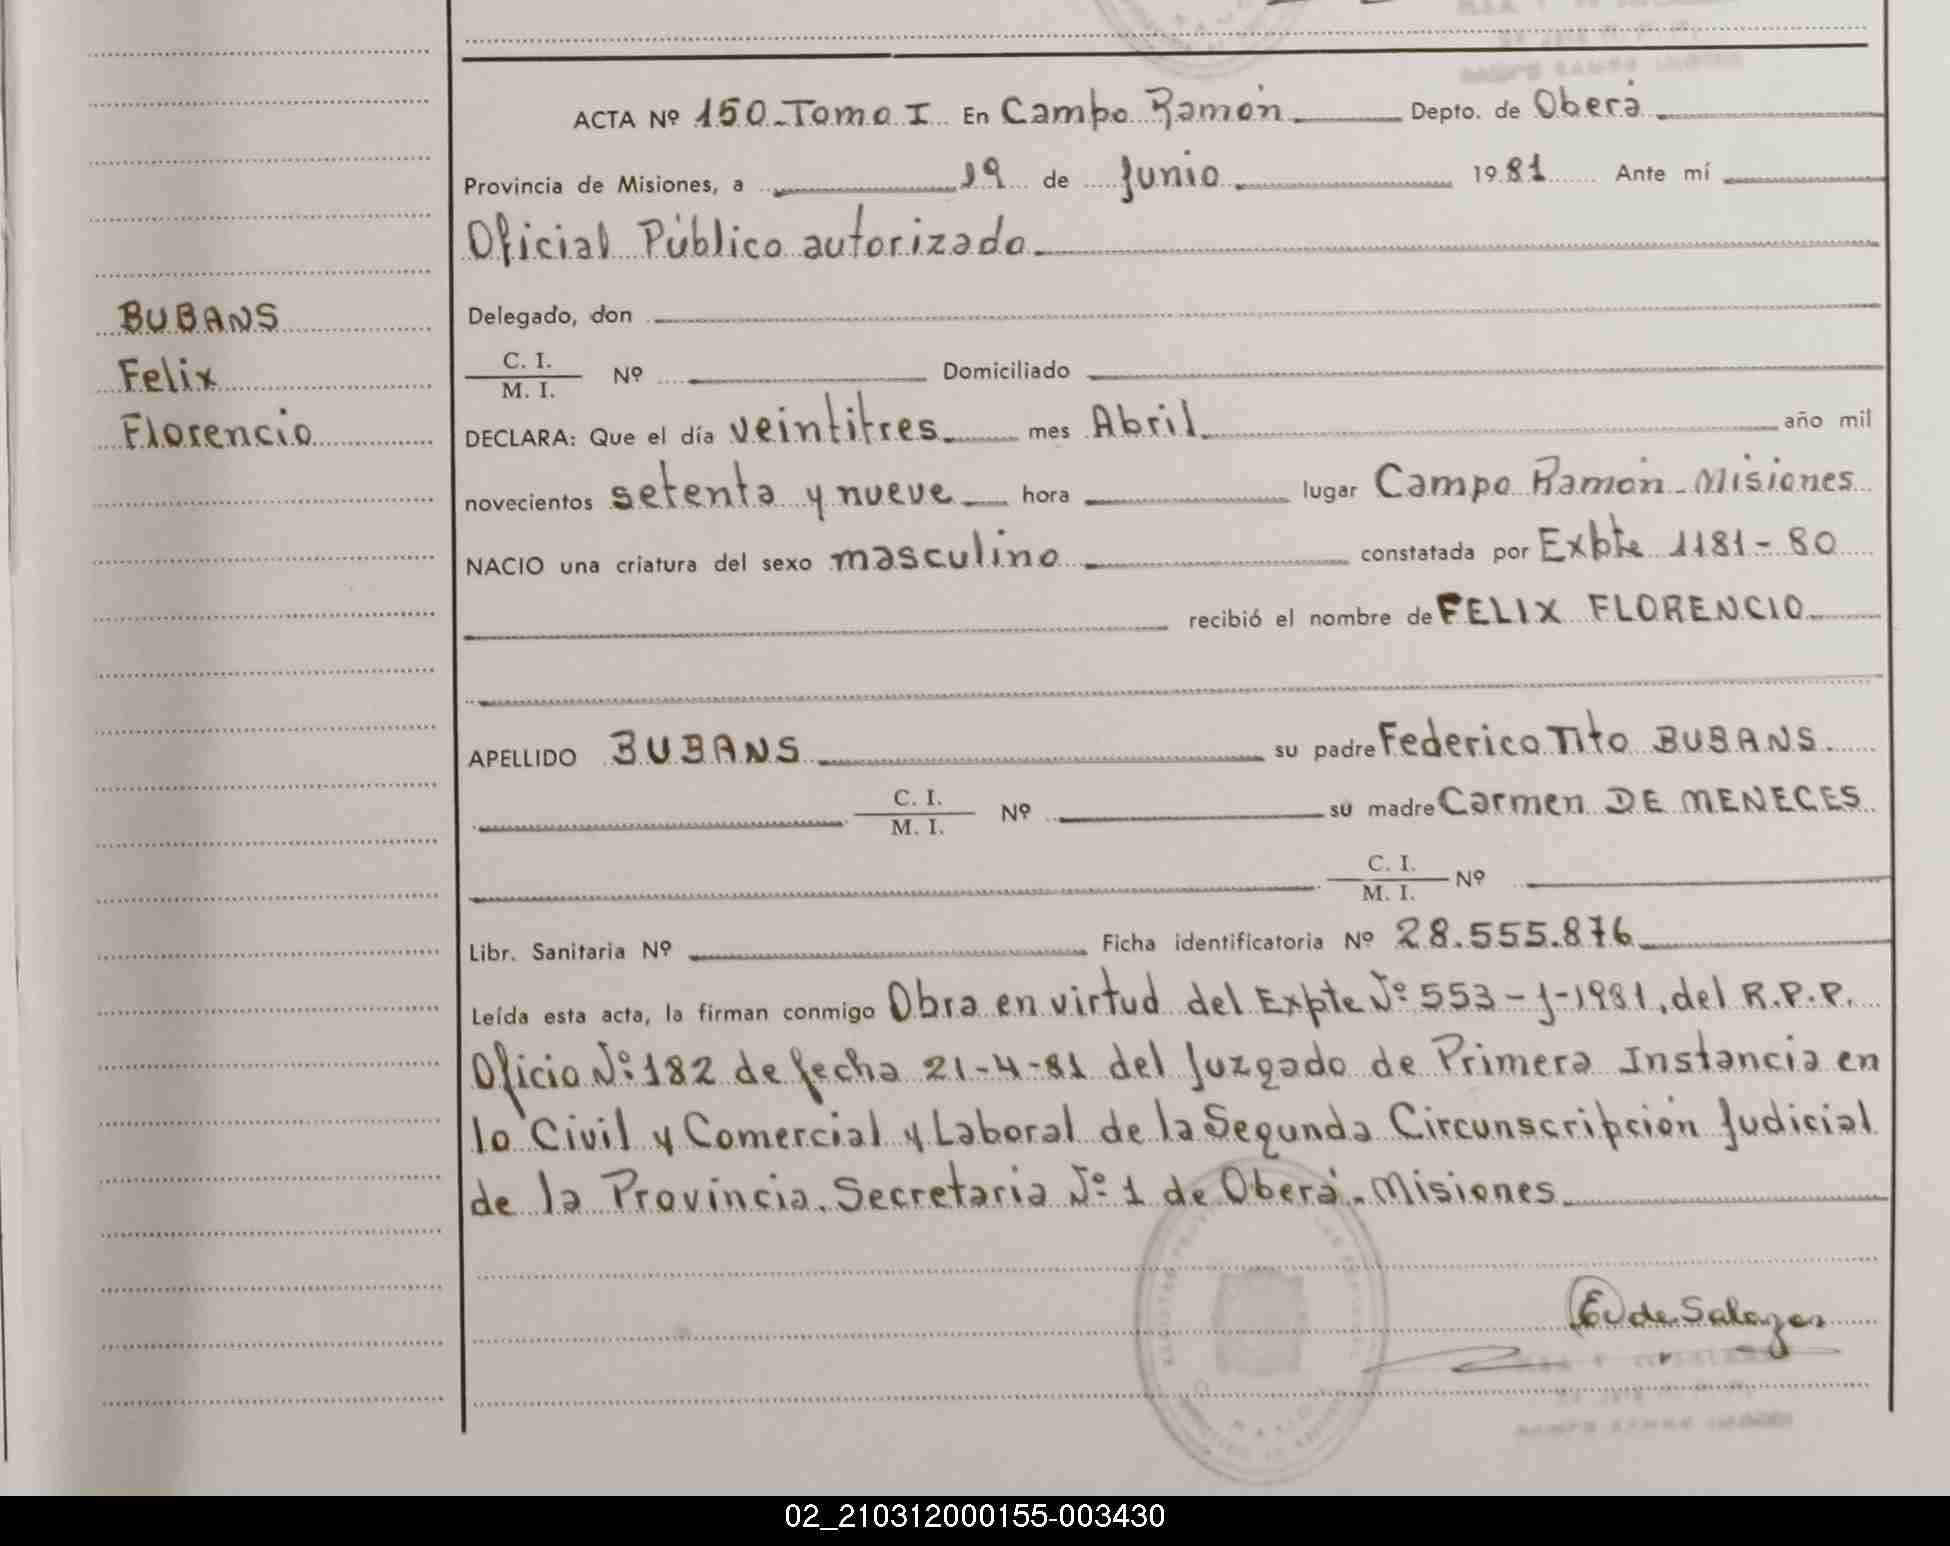 ACTA Nº 150-Tomo I En Campo Ramón Depto. de Oberá
Provincia de Misiones, a 19 de Junio 1981 Ante mí
Oficial Público autorizado
BUBANS
Felix
Florencio
Delegado, don
C. I.
M. I.
Nº Domiciliado
DECLARA: Que el día veintitres mes Abril año mil
novecientos setenta y nueve hora lugar Campo Ramón-Misiones
NACIO una criatura del sexo masculino constatada por Expte 1181-80
recibió el nombre de FELIX FLORENCIO
APELLIDO BUBANS su padre Federico Tito BUBANS.
C. I.
M. I.
Nº su madre Carmen DE MENECES
C. I.
M. I.
Nº
Libr. Sanitaria Nº Ficha identificatoria Nº 28.555.876
Leída esta acta, la firman conmigo Obra en virtud del Expte Nº 553-J-1981, del R.P.P.
Oficio Nº 182 de fecha 21-4-81 del Juzgado de Primera Instancia en
lo Civil y Comercial y Laboral de la Segunda Circunscripción Judicial
de la Provincia. Secretaria Nº 1 de Oberá-Misiones
de Salazar
02_210312000155-003430